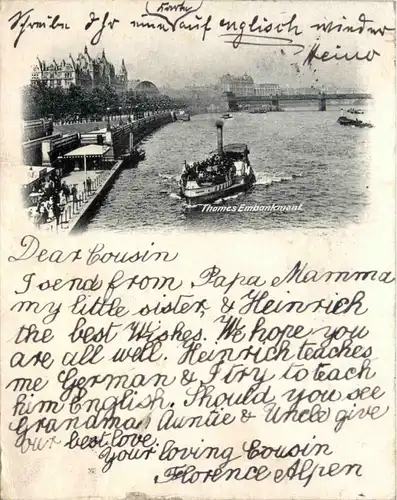 Schreibe Ihr eine Karte auf englisch wieder
Heino
Thames Embankment.
Dear Cousin
I send from Papa Mamma
my little sister, & Heinrich
the best Wishes. We hope you
are all well. Heinrich teaches
me German & I try to teach
him English. Should you see
Grandma Auntie & Uncle give
our best love.
Your loving Cousin
Florence Alpen